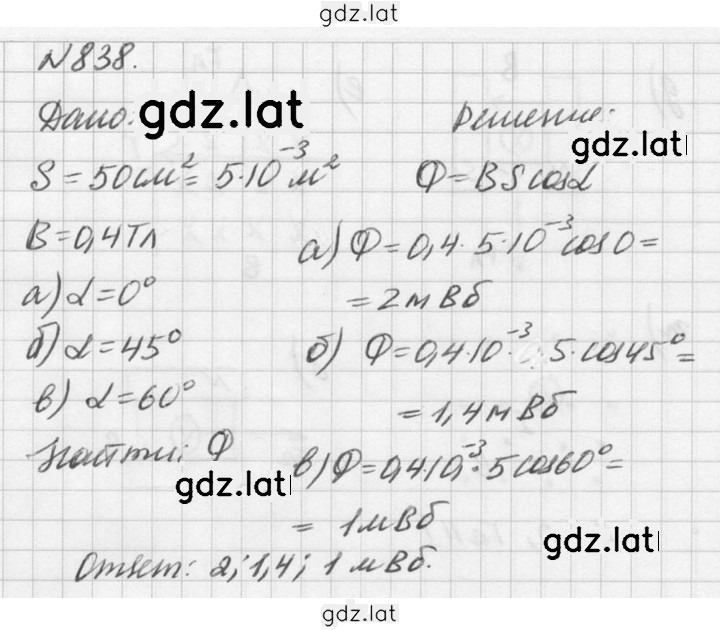 gdz.lat
№838.
Дано: gdz.lat Решение:
gdz.lat
S = 50см² = 5·10⁻³ м² Ф = BS cosα
B = 0,4Тл а) Ф = 0,4 · 5·10⁻³ cos0 =
а) α = 0° = 2мВб
б) α = 45° б) Ф = 0,4·10⁻³ · 5·cos45° =
в) α = 60° = 1,4мВб
Найти: Ф в) Ф = 0,4·10⁻³ · 5cos60° =
gdz.lat
= 1мВб
gdz.lat
Ответ: 2; 1,4; 1 мВб.
gdz.lat